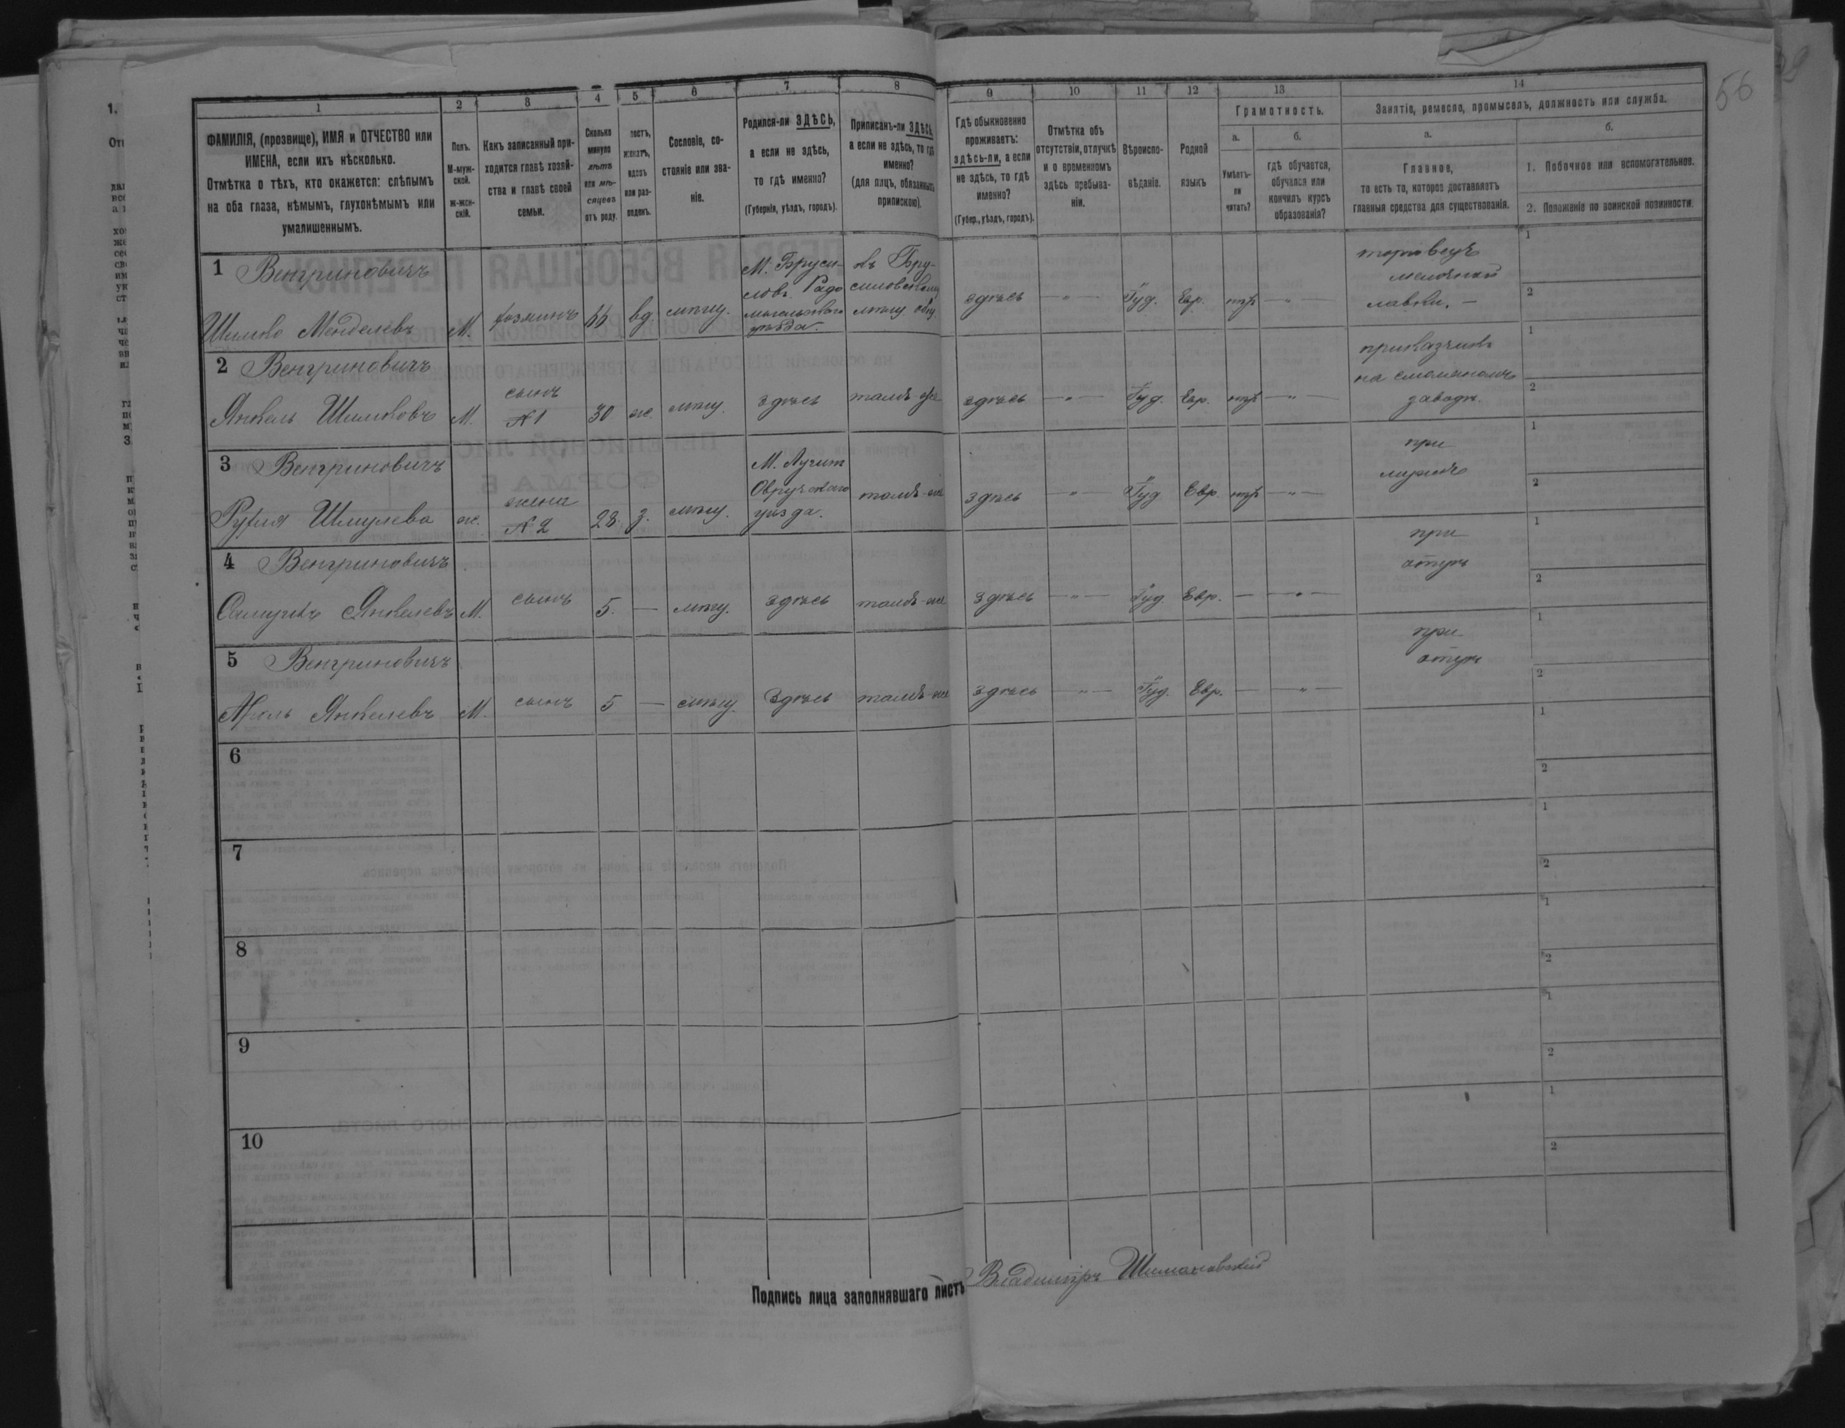 56
1 2 3 4 5 6 7 8 9 10 11 12 13 14
ФАМИЛІЯ, (прозвище), ИМЯ и ОТЧЕСТВО или
ИМЕНА, если ихъ нѣсколько.
Отмѣтка о тѣхъ, кто окажется: слѣпымъ
на оба глаза, нѣмымъ, глухонѣмымъ или
умалишеннымъ.
Полъ.
М-муж-
ской.
ж-жен-
скій.
Какъ записанный при-
ходится главѣ хозяй-
ства и главѣ своей
семьи.
Сколько
минуло
лѣтъ
или мѣ-
сяцевъ
отъ роду.
Сословіе, со-
стояніе или зва-
ніе.
Родился-ли ЗДѢСЬ,
а если не здѣсь,
то гдѣ именно?
(Губернія, уѣздъ, городъ).
Приписанъ-ли ЗДѢСЬ,
а если не здѣсь, то гдѣ
именно?
(для лицъ, обязанныхъ
припискою).
Гдѣ обыкновенно
проживаетъ:
здѣсь-ли, а если
не здѣсь, то гдѣ
именно?
(Губер., уѣздъ, городъ).
Отмѣтка объ
отсутствіи, отлучкѣ
и о временномъ
здѣсь пребыва-
ніи.
Вѣроиспо-
вѣданіе.
Родной
языкъ
Грамотность.
а.
Умѣетъ-
ли
читать?
б.
гдѣ обучается,
обучался или
кончилъ курсъ
образованія?
Занятіе, ремесло, промыселъ, должность или служба.
а.
Главное,
то есть то, которое доставляетъ
главныя средства для существованія.
б.
1. Побочное или вспомогательное.
2. Положеніе по воинской повинности.
1 Венгриновичъ
Шлиово Менделевъ М. хозяинъ 66 вд мѣщ. М. Бруси-
ловъ Радо
мысльского
уѣзда. въ Бру-
силовском
мѣщ. общ здѣсь — " — Іуд. Евр. — " — торговецъ
мелочной
лавки. —
1
2
2 Венгриновичъ
Янкель Шлиовъ М. сынъ
№1 30 ж. мѣщ. здѣсь тамъ-же здѣсь — " — Іуд. Евр. — " — приказчикъ
на смоляномъ
заводѣ.
1
2
3 Венгриновичъ
Рухля Шмулева ж. жена
№2 28. з. мѣщ. М. Лугин
Овручского
уѣзда. тамъ-же здѣсь — " — Іуд Евр. — " — при
мужѣ
1
2
4 Венгриновичъ
Янкелевъ М. сынъ 5. — мѣщ. здѣсь тамъ-же здѣсь — " — Іуд Евр. — — " — при
отцѣ
1
2
5 Венгриновичъ
Янкелевъ М. сынъ 5 — мѣщ. Здѣсь тамъ-же здѣсь — " — Іуд. Евр. — — " — при
отцѣ
1
2
6
1
2
7
1
2
8
1
2
9
1
2
10
1
2
Подпись лица заполнявшаго листъ Владиміръ Шимановскій